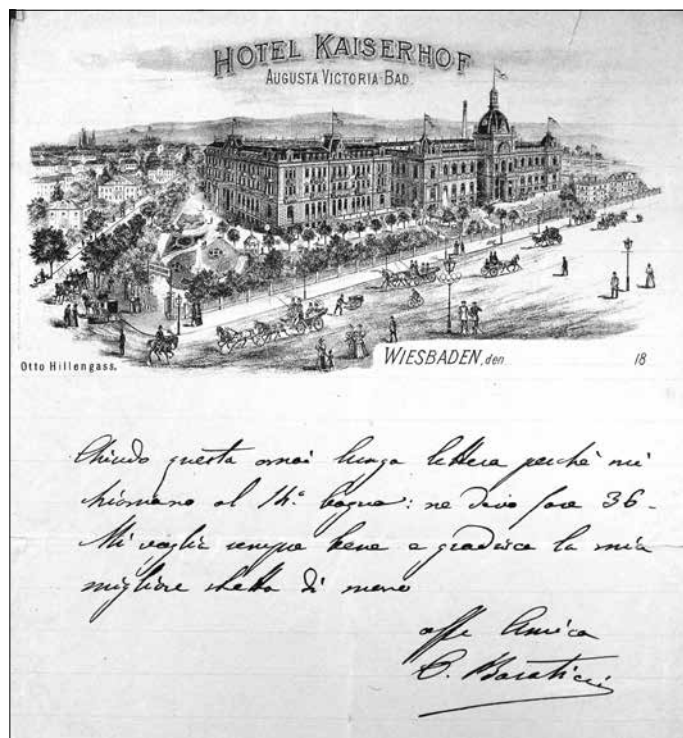 HOTEL KAISERHOF
AUGUSTA VICTORIA-BAD.
Otto Hillengass.
WIESBADEN, den 18
Chiudo questa omai lunga lettera perchè mi
chiamano al 14º bagno: ne devo fare 36-
Mi voglia sempre bene e gradisca la mia
migliore stretta di mano
affe Amica